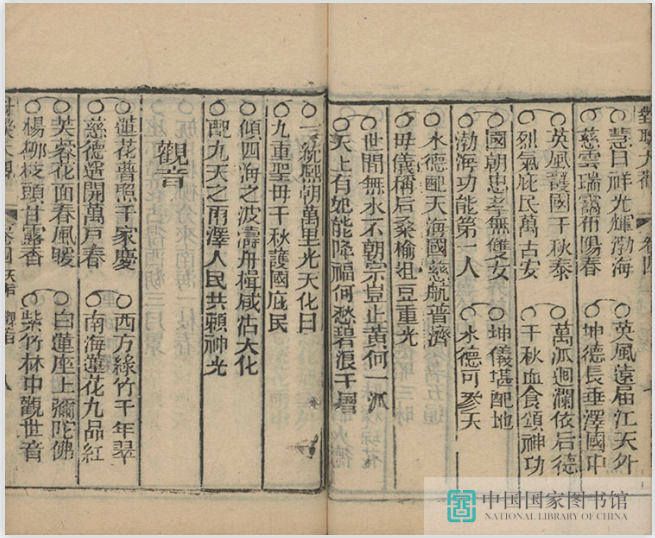 慧日祥光輝渤海　英風遠届江天外
慈雲瑞靄布陽春　坤德長垂澤國中
英風護國千秋泰　萬派迴瀾依后德
烈氣庇民萬古安　千秋血食頌神功
國朝忠孝無雙女　坤儀堪配地
渤海功能第一人　水德可參天
水德配天海國慈航普濟
母儀稱后桑榆俎豆重光
世間無水不朝宗豈止黃何一派
天上有妃能降福何愁碧浪千層
一統熙朝萬里光天化日
九重聖母千秋護國庇民
傾四海之波濤舟楫咸沾大化
配九天之雨澤人民共賴神光
觀音
蓮花普照千家慶　西方綠竹千年翠
慈德遠開萬戶春　南海蓮花九品紅
芙蓉花面春風暖　白蓮座上彌陀佛
楊柳枝頭甘露香　紫竹林中觀世音
中国国家图书馆
NATIONAL LIBRARY OF CHINA